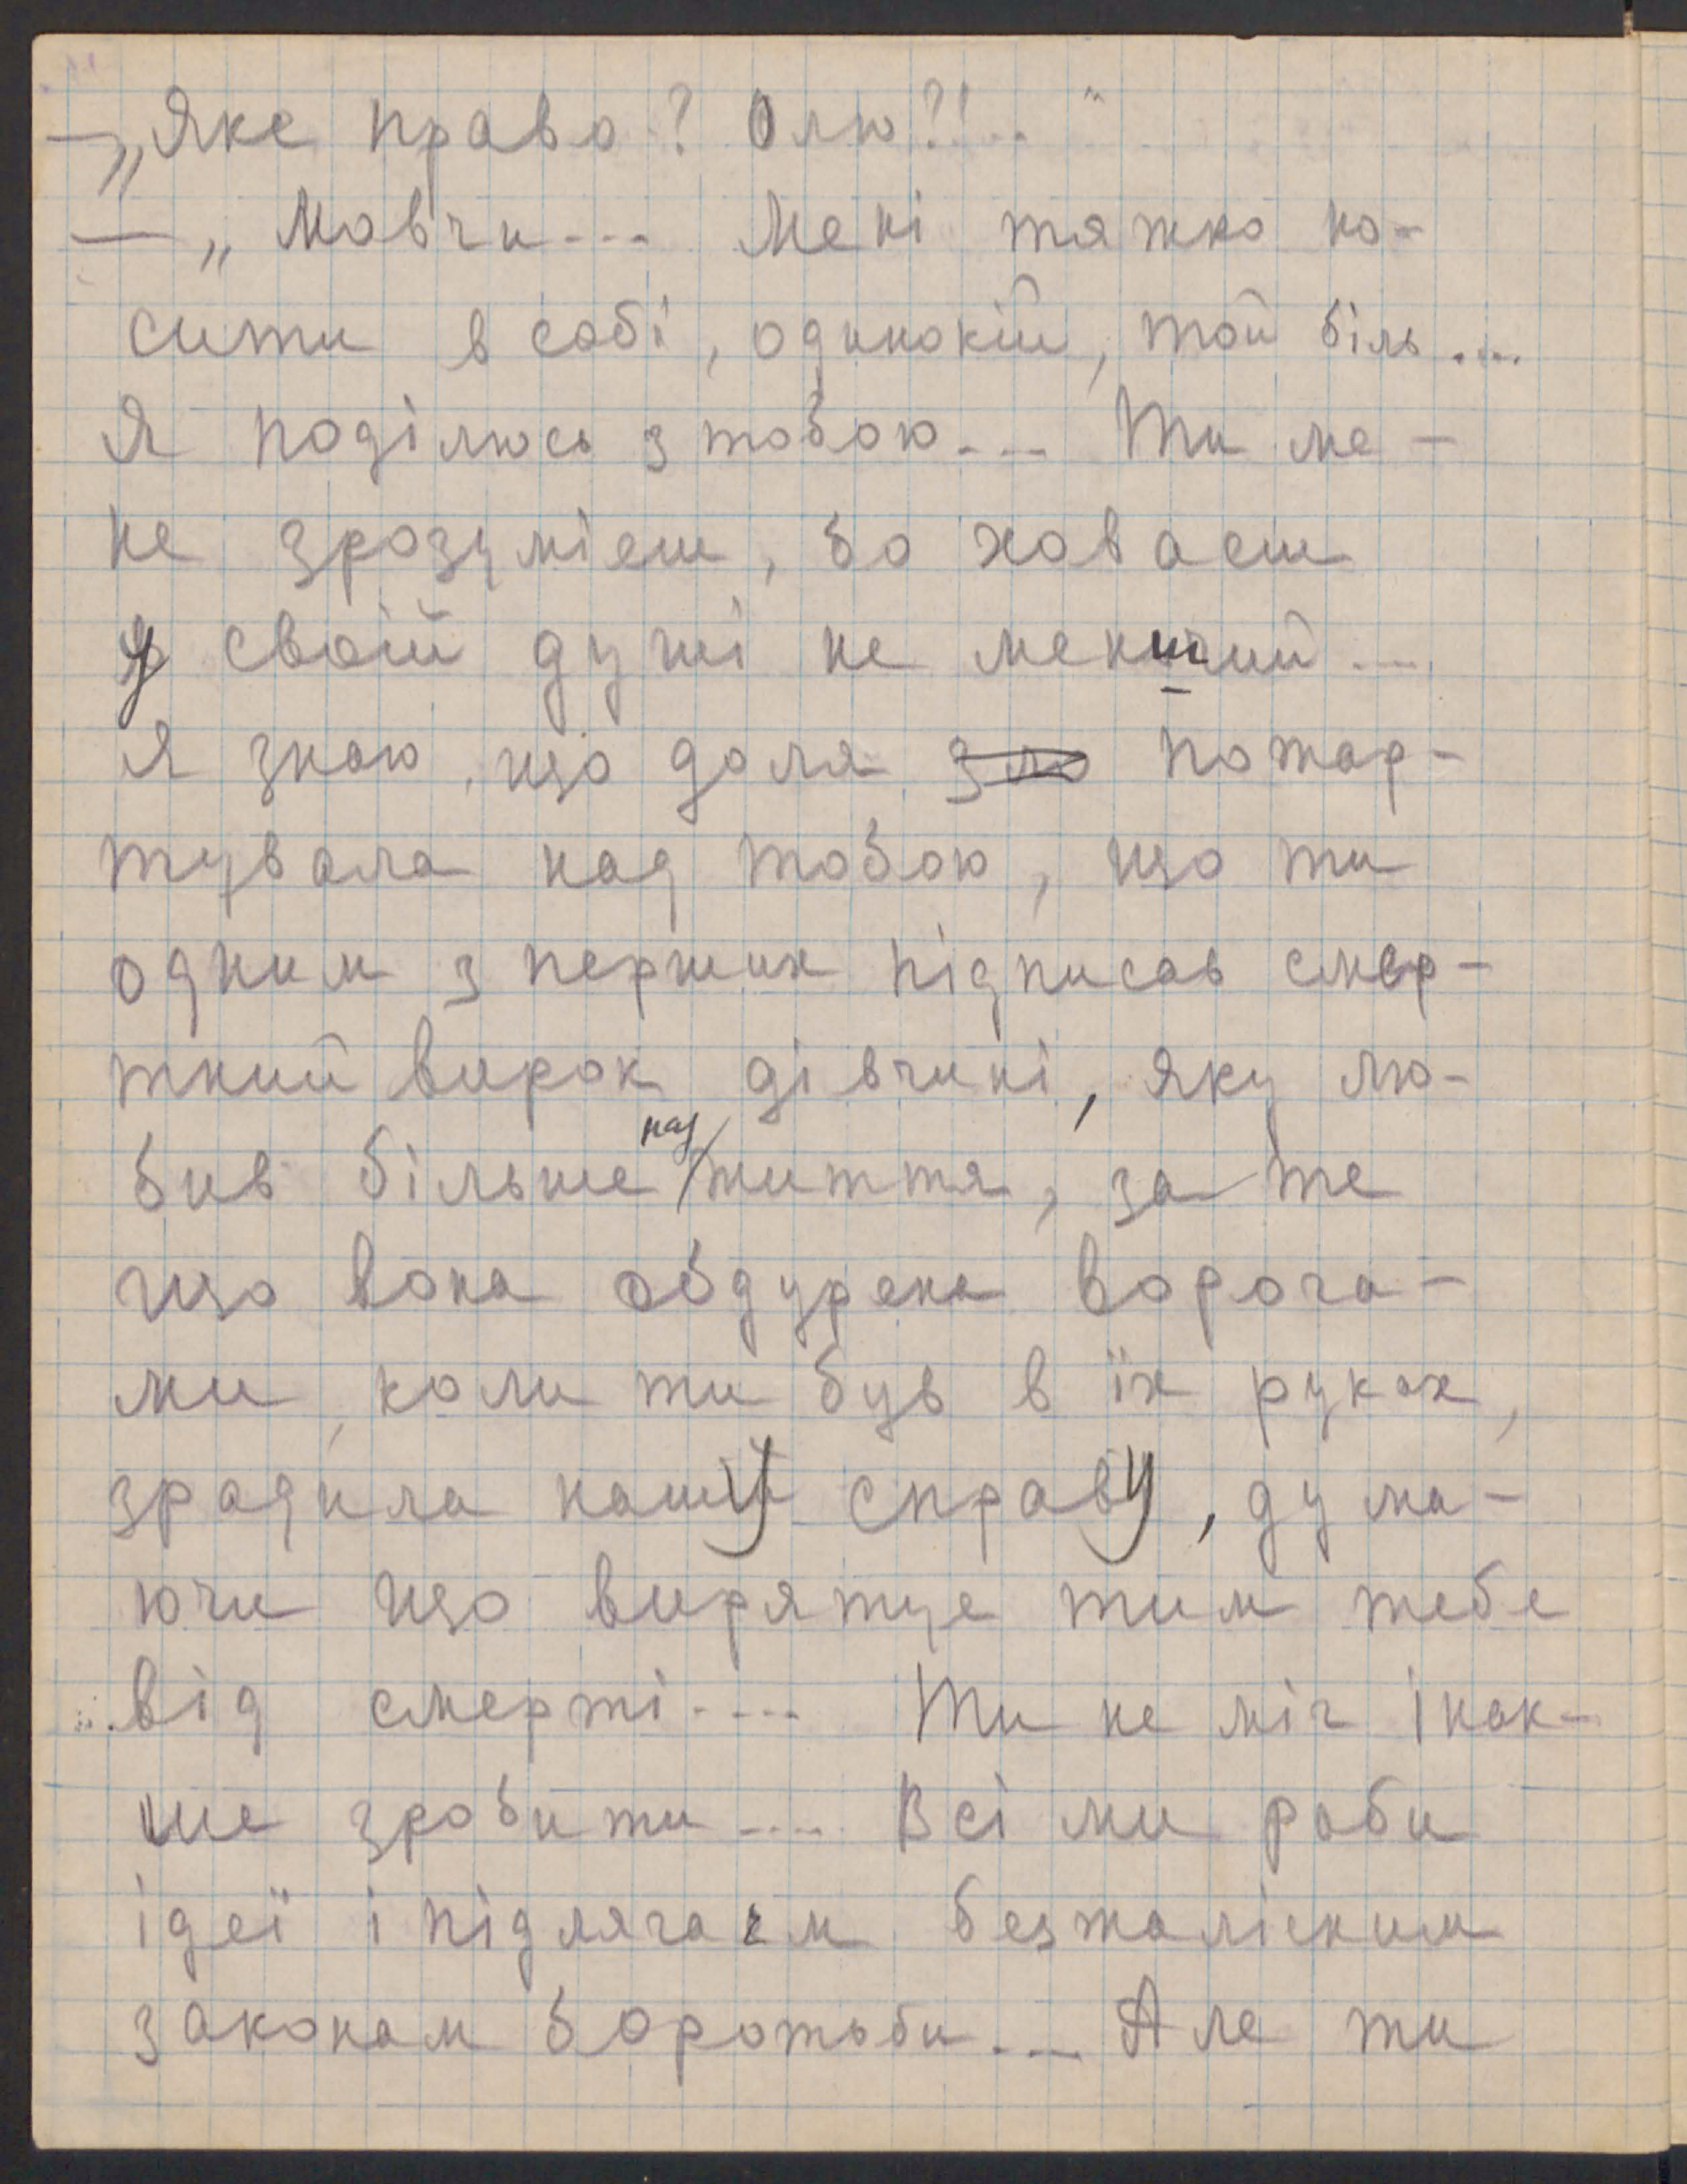 — „Яке право? Олю?!.. "
— „Мовчи... Мені тяжко но-
сити в собі, одинокій, той біль....
Я поділюсь з тобою... Ти ме-
не зрозумієш, бо ховаєш
у своїй душі не менший...
Я знаю, що доля зло пожар-
тувала над тобою, що ти
одним з перших підписав смер-
тний вирок дівчині, яку лю-
бив більше над життя, за те
що вона обдурена ворога-
ми, коли ти був в їх руках,
зрадила нашу справу, дума-
ючи що вирятує тим тебе
від смерті.... Ти не міг інак-
ше зробити.... Всі ми раби
ідеї і підлягаєм безжалісним
законам боротьби... Але ти